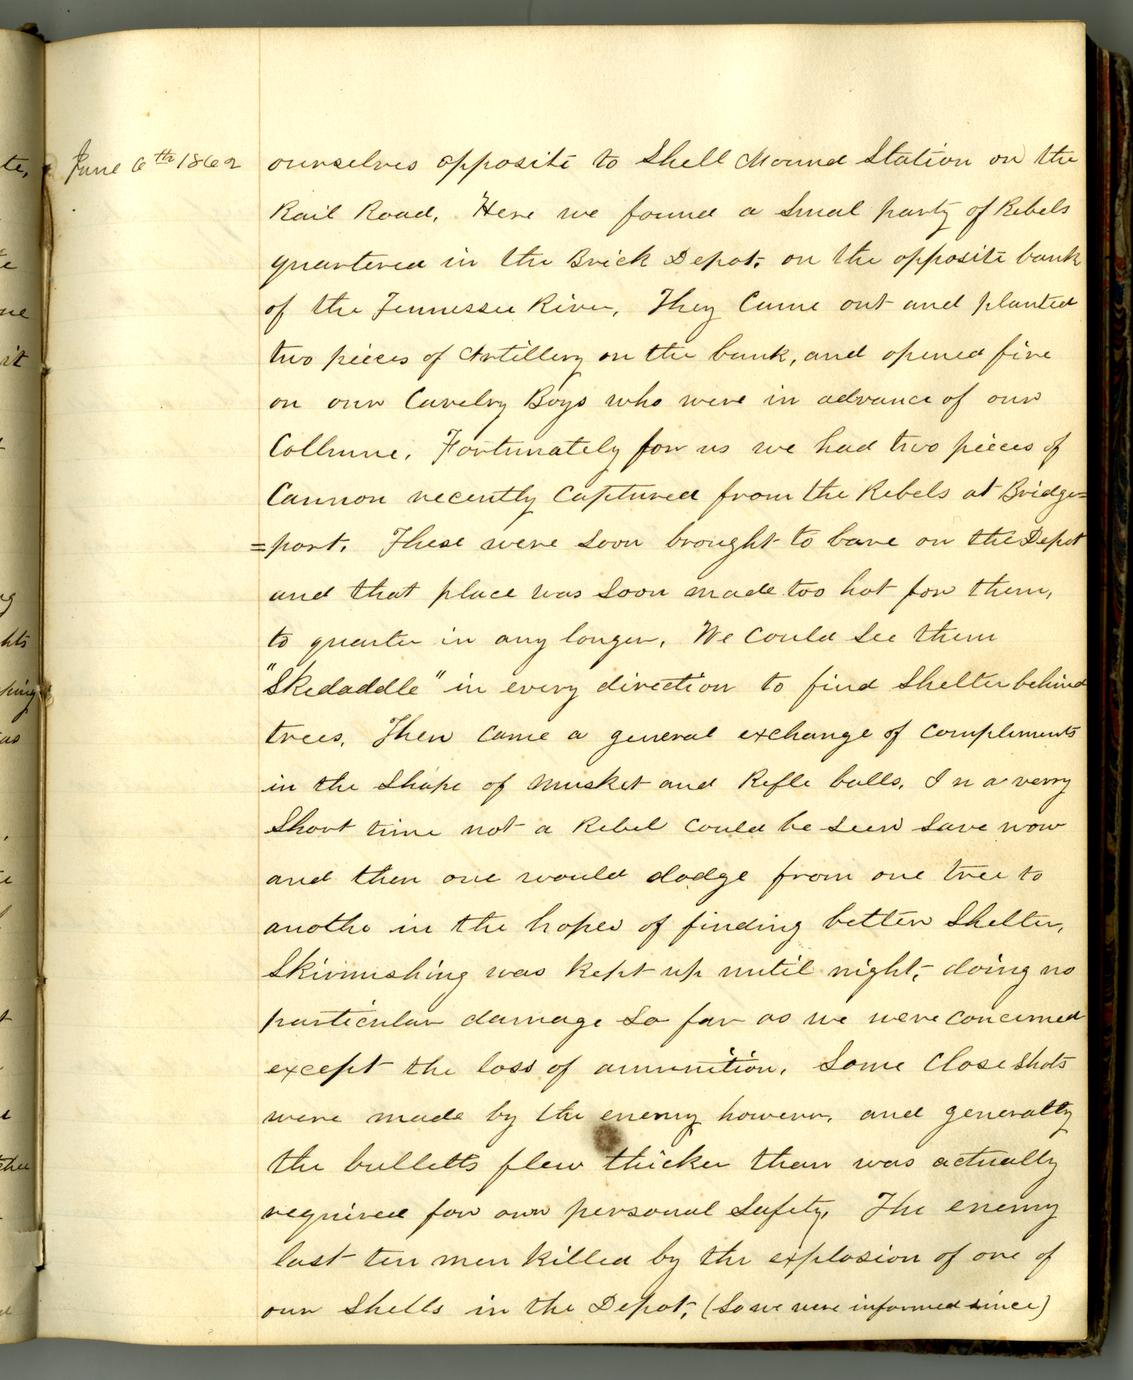 June 6th 1862 ourselves opposite to Shell Mound Station on the
Rail Road. Here we found a Small party of Rebels
quartered in the Brick Depot. on the opposite bank
of the Tennessee River. They Came out and planted
two pieces of Artillery on the bank, and opened fire
on our Cavelry Boys who were in advance of our
Collume. Fortunately for us we had two pieces of
Cannon recently Captured from the Rebels at Bridge=
=port. These were Soon brought to bare on the Depot
and that place was Soon made too hot for them,
to quarter in any longer. We Could See them
"Skedaddle" in every direction to find Shelter behind
trees. Then Came a general exchange of Compliments
in the Shape of Musket and Rifle balls. In a verry
Short time not a Rebel Could be Seen Save now
and then one would dodge from one tree to
anothe in the hopes of finding better Shelter.
Skirmishing was Kept up until night, doing no
particular damage So far as we were Concerned
except the loss of ammunition. Some Close Shots
were made by the enemy however, and generally
the bulletts flew thicker than was actually
required for our personal Safety. The enemy
lost ten men Killed by the explosion of one of
our Shells in the Depot, (So we were informed since)